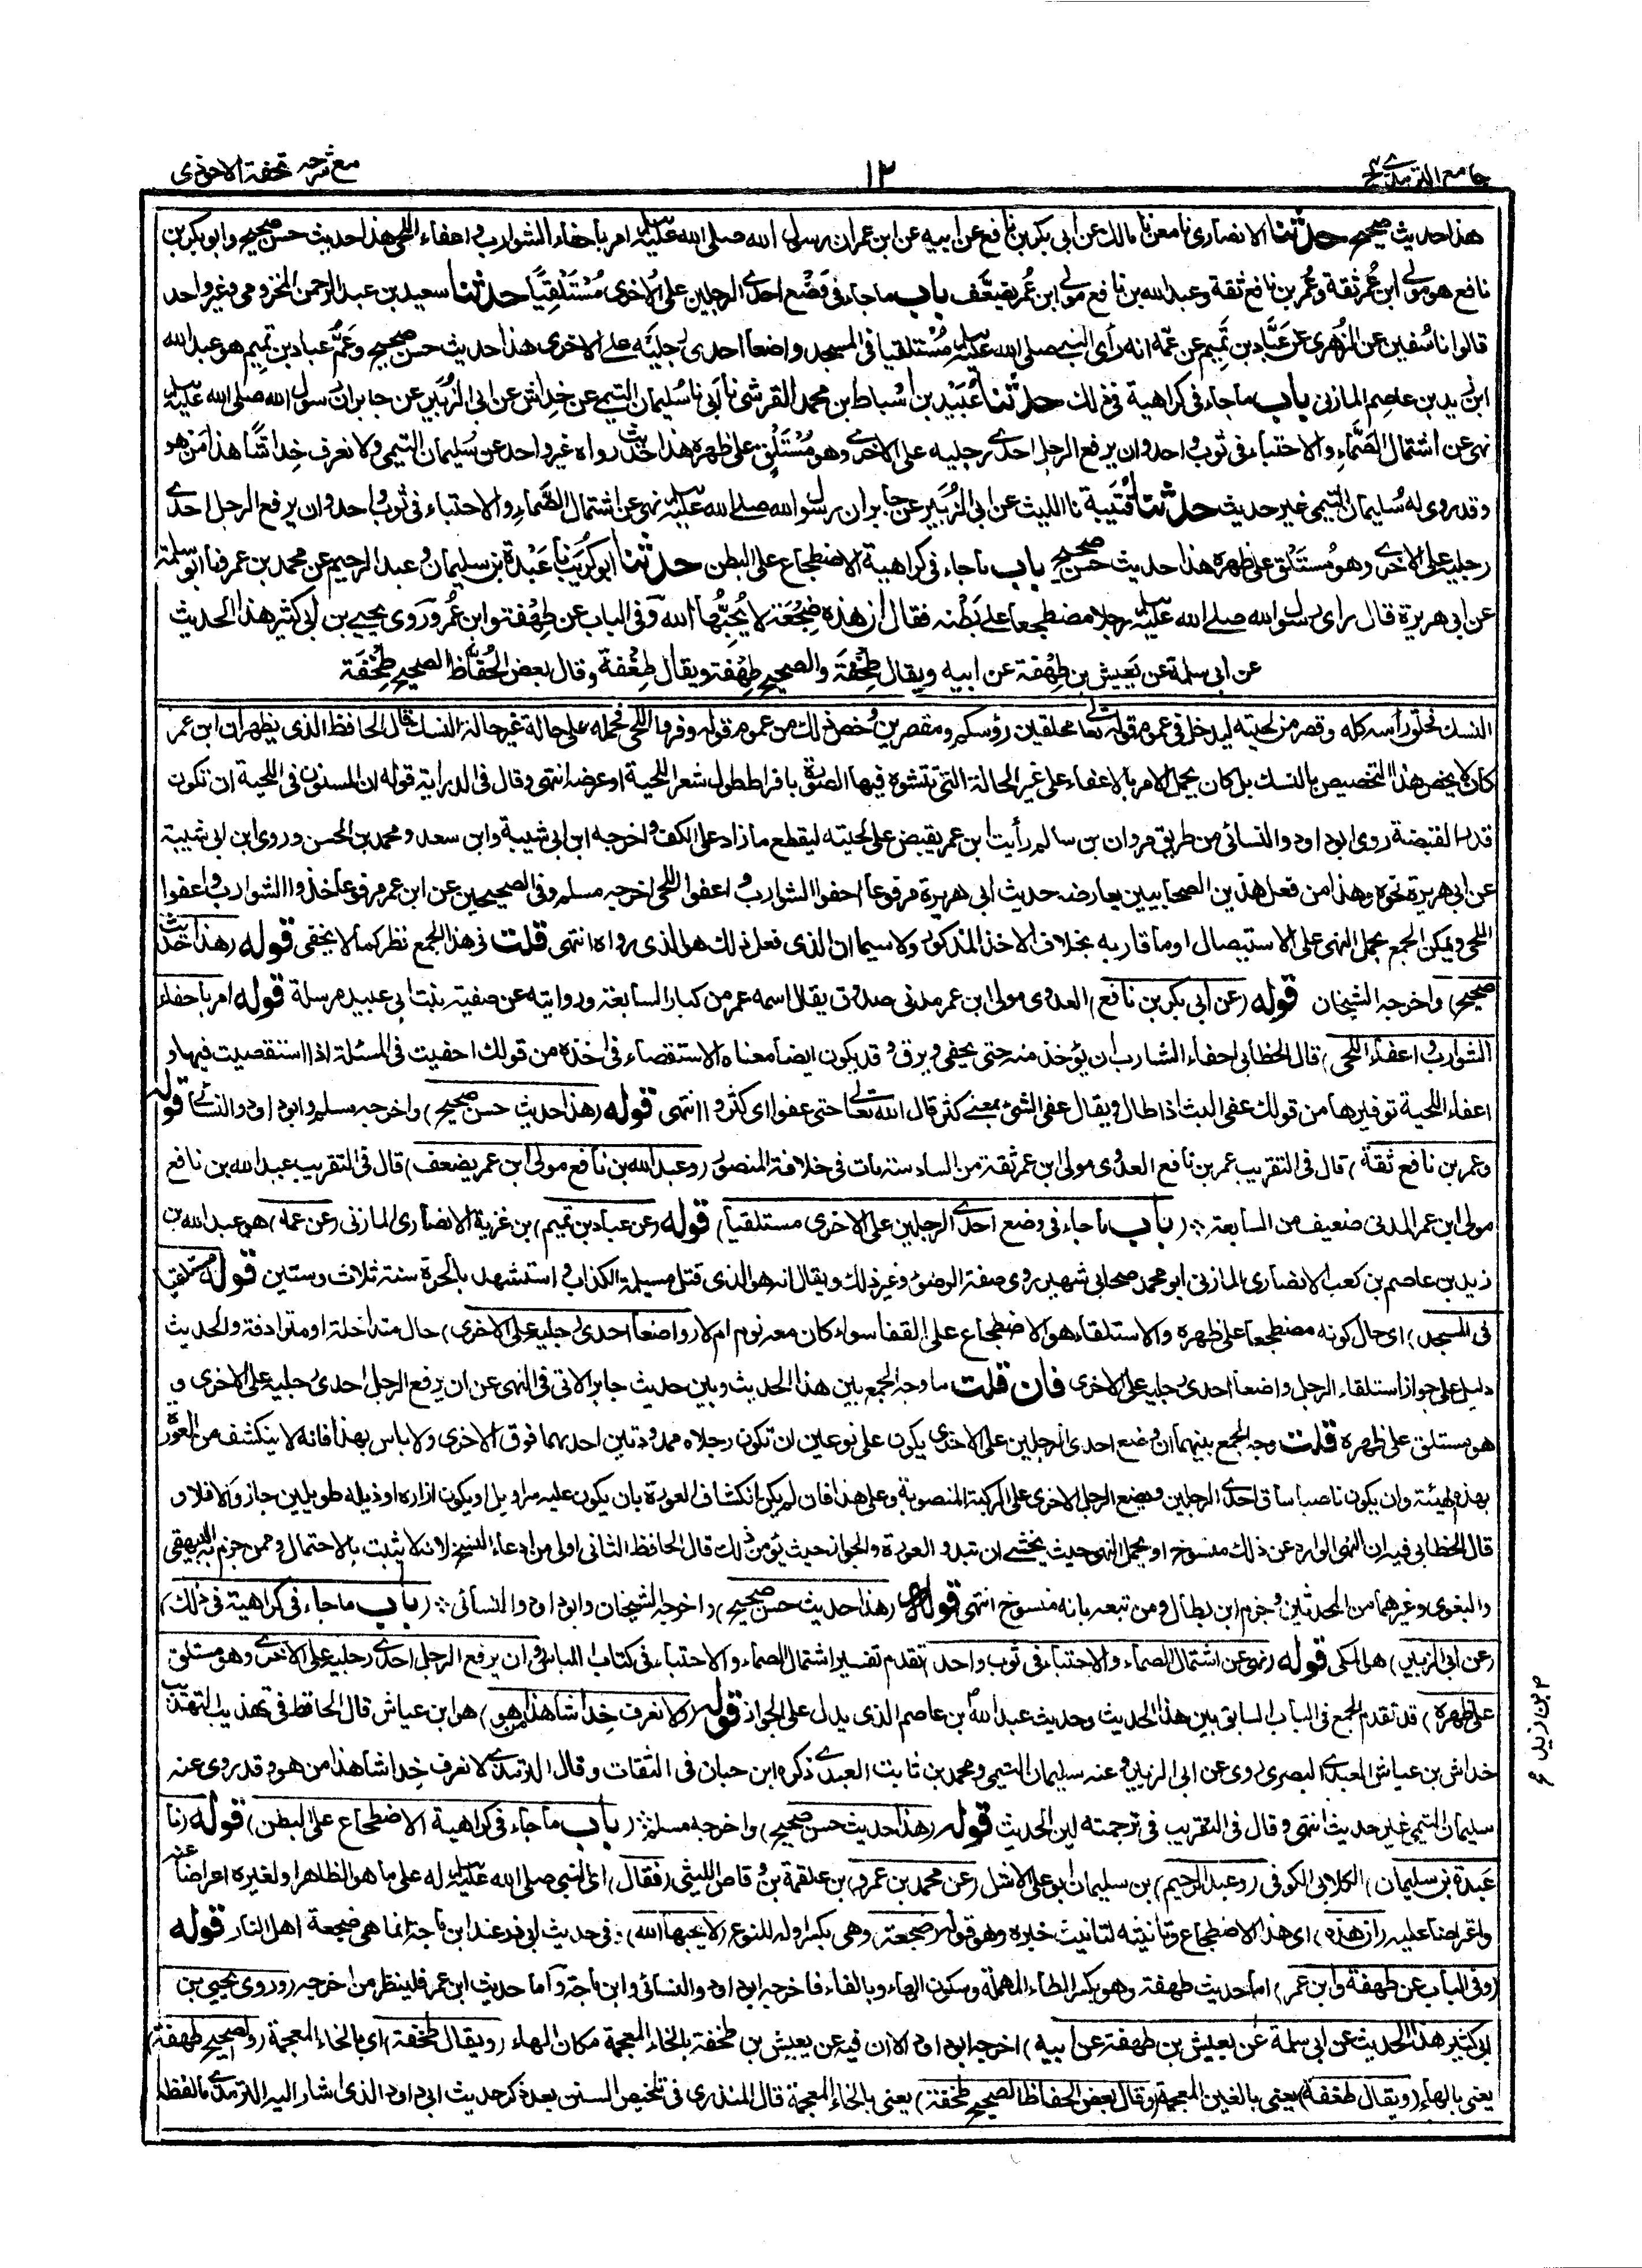 جامع الترمذي ج ٤
١٢
مع شرحه تحفة الاحوذى
هذا حديث صحيح حدثنا الانصارى نا معن نا مالك عن ابى بكر بن نافع عن ابيه عن ابن عمر ان رسول الله صلى الله عليه وسلم امر باحفاء الشوارب واعفاء اللحى هذا حديث حسن صحيح وابو بكر بن
نافع هو مولى ابن عُمر ثقة وعُمر بن نافع ثقة وعبد الله بن نافع مولى ابن عُمر يضعَّف باب ما جاء فى وَضْع احدى الرجلين على الاُخرى مُسْتَلْقِيًا حدثنا سعيد بن عبد الرحمن المخزومى وغير واحد
قالوا نا سُفين عن الزُهرى عن عَبَّاد بن تَمِيم عن عَمِّه انه رأى النبى صلى الله عليه وسلم مُسْتلقيا فى المسجد واضعا احدى رجليَه على الاخرى هذا حديث حسن صحيح وعَمُّ عباد بن تميم هو عبد الله
ابن زيد بن عاصم المازنى باب ما جاء فى كراهية فى ذلك حدثنا عُبَيْد بن اَسْباط بن محمد القرشى نا اَبى نا سُليمان التيمى عن خِداش عن ابى الزُبَير عن جابر ان رسول الله صلى الله عليه وسلم
نهى عن اشتمال الصَّمَّاءِ والاحتباء فى ثوب واحد وان يرفع الرجل احدى رجليه على الاخرى وهو مُسْتَلْقٍ على ظهره هذا حديث رواه غير واحد عن سُليمان التيمى ولا نعرف خِداشًا هذا مَن هو
وقد روى له سُليمان التيمى غير حديث حدثنا قُتَيبة نا الليث عن ابى الزُبَير عن جابر ان رسول الله صلى الله عليه وسلم نهى عن اشتمال الصَّماءِ والاحتباء فى ثوب واحد وان يرفع الرجل احدى
رجليه على الاخرى وهو مُستَلْقٍ على ظهره هذا حديث حسن صحيح باب ما جاء فى كراهية الاضطجاع على البطن حدثنا ابو كُرَيب نا عَبْدة بن سليمان وعبد الرحيم عن محمد بن عمرو نا ابو سلمة
عن ابى هريرة قال راى رسول الله صلى الله عليه وسلم رجلا مضطجعا على بَطْنه فقال ان هذه ضِجْعَة لا يُحِبُّها الله وفى الباب عن طِهْفة وابن عُمر وروى يحيى بن ابى كثير هذا الحديث
عن ابى سلمة عن يَعِيش بن طِهْفة عن ابيه ويقال طِخْفَة والصحيح طِهْفة ويقال طِغْفة وقال بعض الحُفّاظ الصحيح طِخْفَة
النسك فحلق رأسه كله وقصر من لحيته ليدخل فى عموم قوله تعالى محلقين رؤسكم ومقصرين وخص ذلك من عموم قوله وفروا اللحى فحمله على حالة غير حالة النسك قال الحافظ الذى يظهر ان ابن عمر
كان لا يخص هذا التخصيص بالنسك بل كان يحمل الامر بالاعفاء على غير الحالة التى تتشوه فيها الصورة بافراط طول شعر اللحية او عرضه انتهى وقال فى الدراية قوله ان المسنون فى اللحية ان تكون
قدر القبضة روى ابو داود والنسائى من طريق مروان بن سالم رأيت ابن عمر يقبض على لحيته ليقطع ما زاد على الكف واخرجه ابن ابى شيبة وابن سعد ومحمد بن الحسن وروى ابن ابى شيبة
عن ابى هريرة نحوه وهذا من فعل هذين الصحابيين يعارضه حديث ابى هريرة مرفوعا احفوا الشوارب واعفوا اللحى اخرجه مسلم وفى الصحيحين عن ابن عمر مرفوعا خذوا الشوارب واعفوا
اللحى ويمكن الجمع بحمل النهى على الاستيصال او ما قاربه بخلاف الاخذ المذكور ولا سيما ان الذى فعل ذلك هو الذى رواه انتهى قلت فى هذا الجمع نظر كما لا يخفى قوله (هذا حديث
صحيح) واخرجه الشيخان قوله (عن ابى بكر بن نافع) العدوى مولى ابن عمر مدنى صدوق يقال اسمه عمر من كبار السابعة وروايته عن صفية بنت ابى عبيد مرسلة قوله امر باحفاء
الشوارب واعفاء اللحى) قال الخطابى احفاء الشارب ان يؤخذ منه حتى يحفى ويرق وقد يكون ايضا معناه الاستقصاء فى اخذه من قولك احفيت فى المسئلة اذا استقصيت فيها و
اعفاء اللحية توفيرها من قولك عفى النبت اذا طال ويقال عفى الشئ بمعنى كثر قال الله تعالى حتى عفوا اى كثروا انتهى قوله (هذا حديث حسن صحيح) واخرجه مسلم وابو داود والنسائى قوله
وعمر بن نافع ثقة) قال فى التقريب عمر بن نافع العدوى مولى ابن عمر ثقة من السادسة مات فى خلافة المنصور (وعبد الله بن نافع مولى ابن عمر يضعف) قال فى التقريب عبد الله بن نافع
مولى ابن عمر المدنى ضعيف من السابعة (باب ما جاء فى وضع احدى الرجلين على الاخرى مستلقيا) قوله (عن عباد بن تميم) بن غزية الانصارى المازنى (عن عمه) هو عبد الله بن
زيد بن عاصم بن كعب الانصارى المازنى ابو محمد صحابى شهير روى صفة الوضوء وغير ذلك ويقال انه هو الذى قتل مسيلمة الكذاب واستشهد بالحرة سنة ثلاث وستين قوله مستلقيا
فى المسجد) اى حال كونه مضطجعا على ظهره والاستلقاء هو الاضطجاع على القفا سواء كان معه نوم ام لا (واضعا احدى رجليه على الاخرى) حال متداخلة او مترادفة والحديث
دليل على جواز استلقاء الرجل واضعا احدى رجليه على الاخرى فان قلت ما وجه الجمع بين هذا الحديث وبين حديث جابر الاتى فى النهى عن ان يرفع الرجل احدى رجليه على الاخرى و
هو مستلق على ظهره قلت وجه الجمع بينهما ان وضع احدى الرجلين على الاخرى يكون على نوعين ان تكون رجلاه ممدودتين احدهما فوق الاخرى ولا باس بهذا فانه لا ينكشف من العورة
بهذه الهيئة وان يكون ناصبا ساق احدى الرجلين ويضع الرجل الاخرى على الركبة المنصوبة وعلى هذا فان لم يكن انكشاف العورة بان يكون عليه سراويل او يكون ازاره او ذيله طويلين جاز والا فلا و
قال الخطابى فيه ان النهى الوارد عن ذلك منسوخ او يحمل النهى حيث يخشى ان تبدو العورة والجواز حيث يؤمن ذلك قال الحافظ الثانى اولى من ادعاء النسخ لانه لا يثبت بالاحتمال وممن جزم به البيهقى
والبغوى وغيرهما من المحدثين وجزم ابن بطال ومن تبعه بانه منسوخ انتهى قوله (هذا حديث حسن صحيح) واخرجه الشيخان وابو داود والنسائى (باب ما جاء فى كراهية فى ذلك)
(عن ابى الزبير) هو المكى قوله (نهى عن اشتمال الصماء والاحتباء فى ثوب واحد) تقدم تفسير اشتمال الصماء والاحتباء فى كتاب اللباس (وان يرفع الرجل احدى رجليه على الاخرى وهو مستلق
على ظهره) قد تقدم الجمع فى الباب السابق بين هذا الحديث وحديث عبد الله بن عاصم الذى يدل على الجواز قوله (ولا نعرف خداشا هذا من هو) هو ابن عياش قال الحافظ فى تهذيب التهذيب
خداش بن عياش العبدى البصرى روى عن ابى الزبير وعنه سليمان التيمى ومحمد بن ثابت العبدى ذكره ابن حبان فى الثقات وقال الترمذى لا نعرف خداشا هذا من هو وقد روى عنه
سليمان التيمى غير حديث انتهى وقال فى التقريب فى ترجمته لين الحديث قوله (هذا حديث حسن صحيح) واخرجه مسلم (باب ما جاء فى كراهية الاضطجاع على البطن) قوله (نا
عبدة بن سليمان) الكلابى الكوفى (وعبد الرحيم) بن سليمان ابو على الاشل (عن محمد بن عمرو) بن علقمة بن وقاص الليثى (فقال) اى النبى صلى الله عليه وسلم له على ما هو الظاهر او لغيره اعراضا عنه
واعتراضا عليه (ان هذه) اى هذا الاضطجاع وتانيثه لتانيث خبره وهو قوله (ضجعة) وهى بكسر اوله للنوع (لا يحبها الله) فى حديث ابى ذر عند ابن ماجة انما هى ضجعة اهل النار قوله
(وفى الباب عن طهفة وابن عمر) اما حديث طهفة وهو بكسر الطاء المهملة وسكون الهاء وبالفاء فاخرجه ابو داود والنسائى وابن ماجة واما حديث ابن عمر فلينظر من اخرجه (وروى يحيى بن
ابى كثير هذا الحديث عن ابى سلمة عن يعيش بن طهفة عن ابيه) اخرجه ابو داود الا ان فيه عن يعيش بن طخفة بالخاء المعجمة مكان الهاء (ويقال طخفة) اى بالخاء المعجمة (والصحيح طهفة)
يعنى بالهاء (ويقال طغفة) يعنى بالغين المعجمة (وقال بعض الحفاظ الصحيح طخفة) يعنى بالخاء المعجمة قال المنذرى فى تلخيص السنن بعد ذكر حديث ابى داود الذى اشار اليه الترمذى ما لفظه
بن زيد